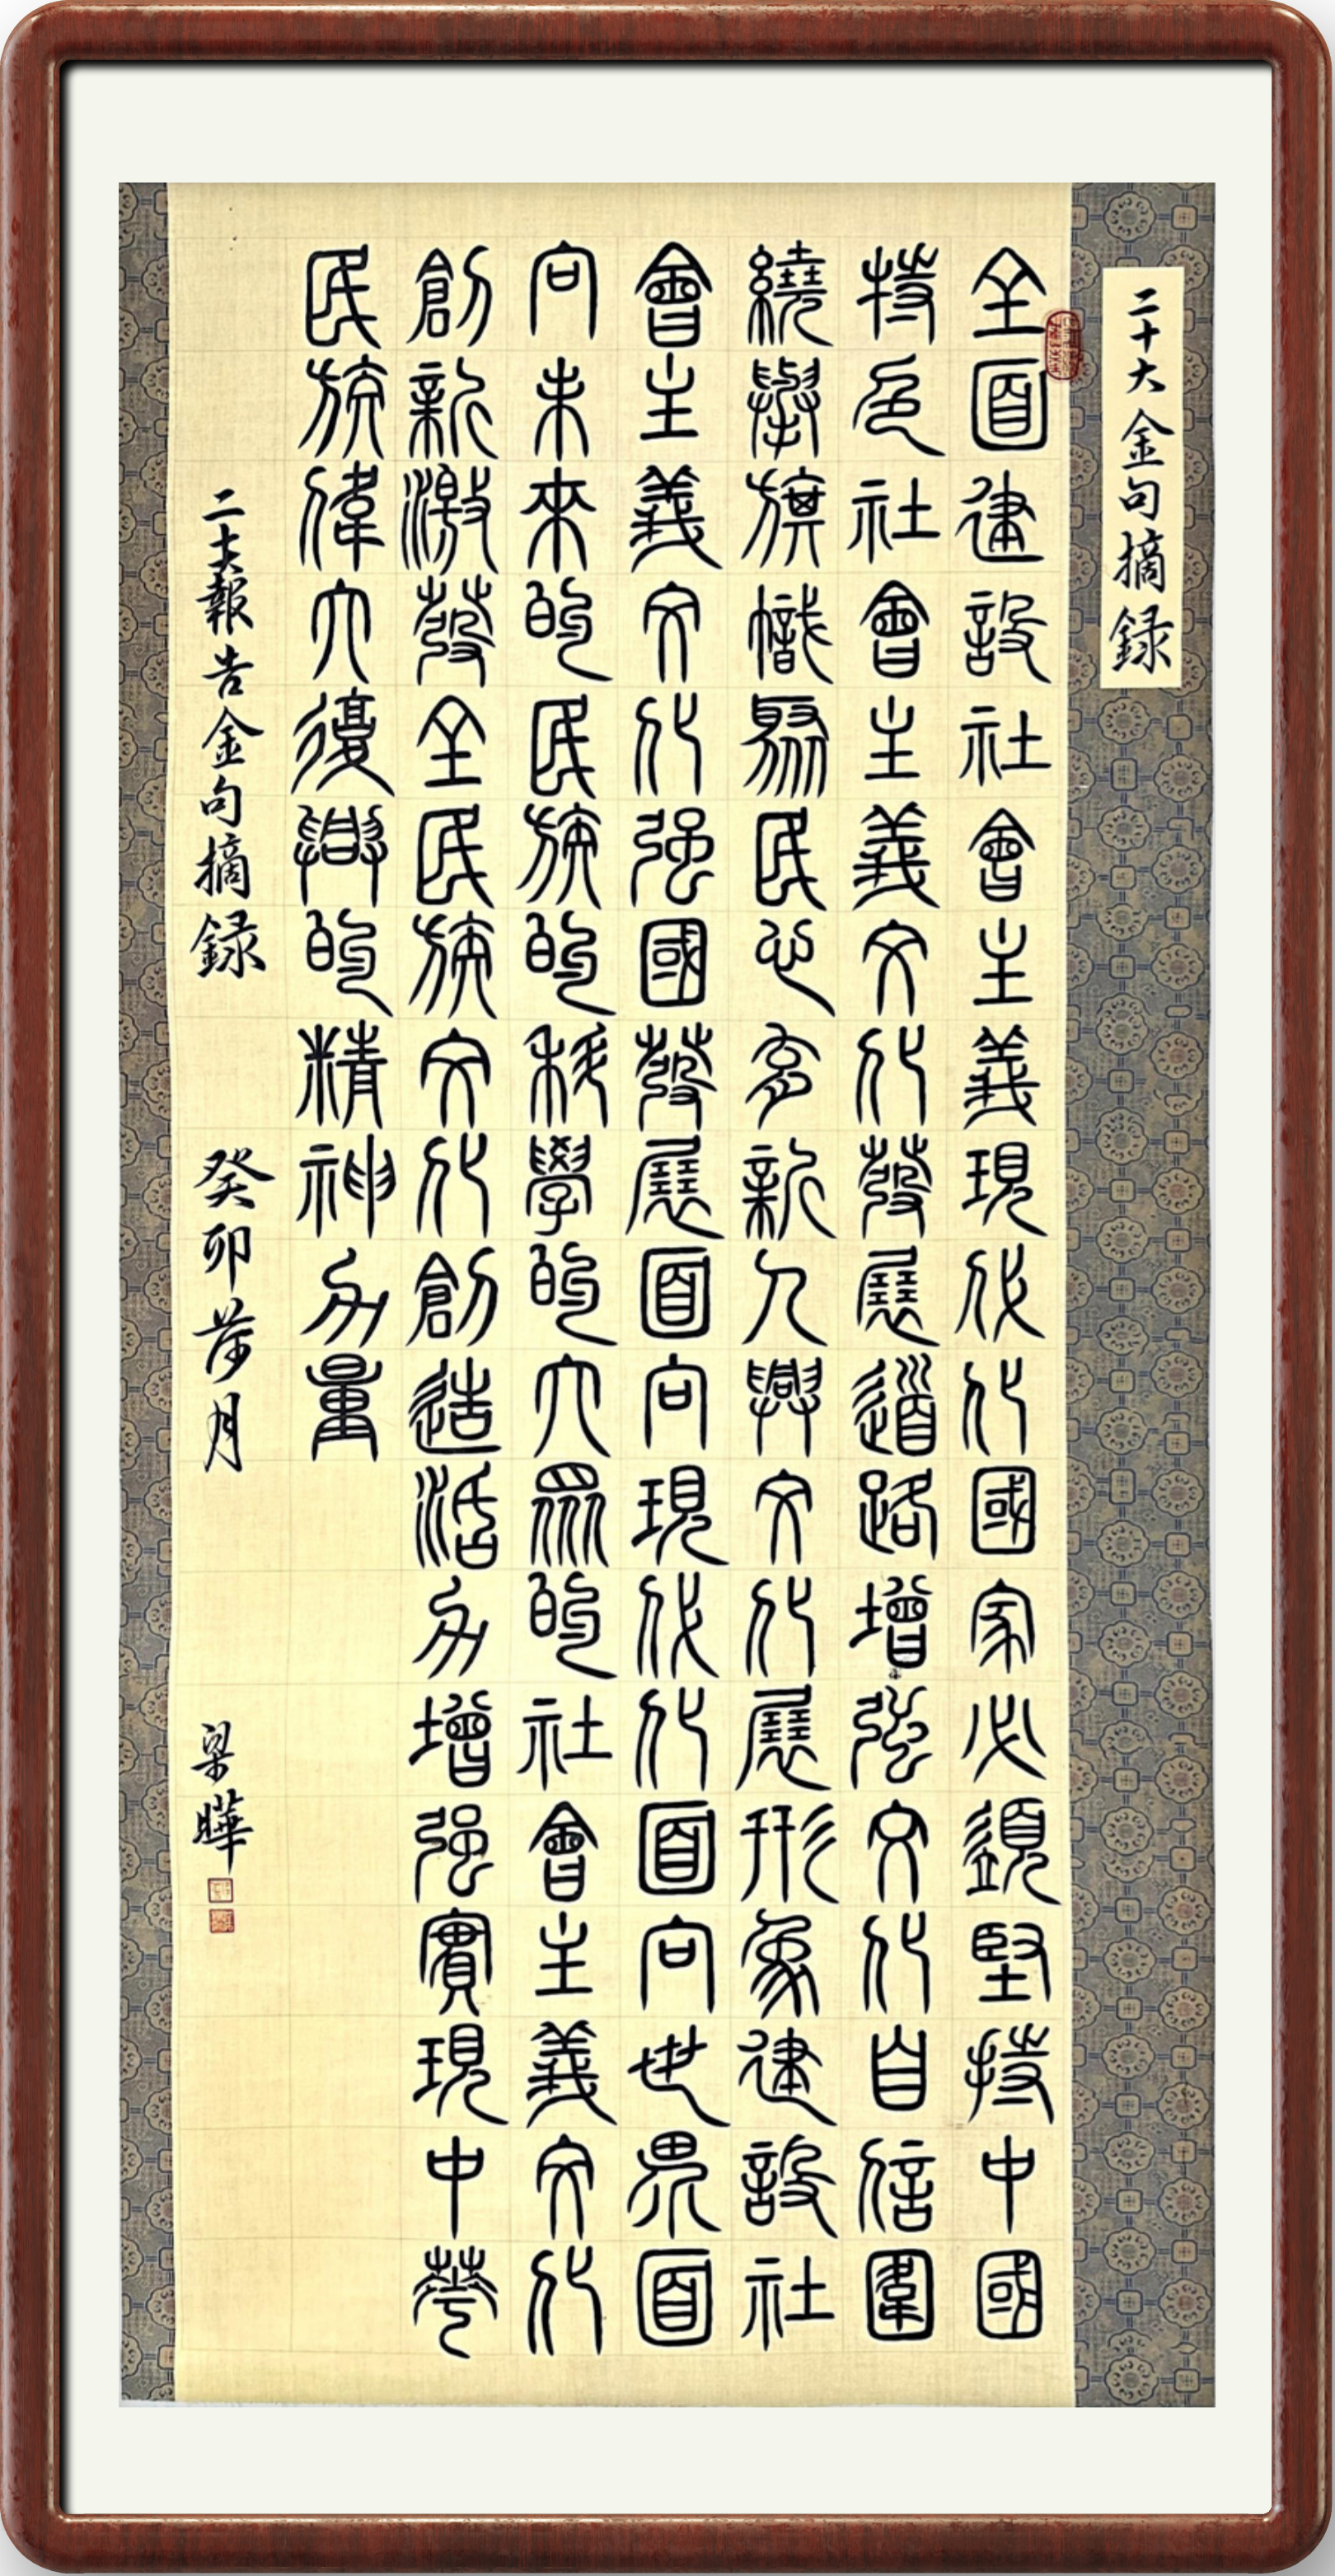 二十大金句摘録
全面建設社會主義現代化國家必須堅持中國
特色社會主義文化發展道路增強文化自信圍
繞舉旗幟聚民心育新人興文化展形象建設社
會主義文化强國發展面向現代化面向世界面
向未來的民族的科學的大眾的社會主義文化
創新激發全民族文化創造活力增强實現中華
民族偉大復興的精神力量
二十大報告金句摘録 癸卯荷月 梁曄